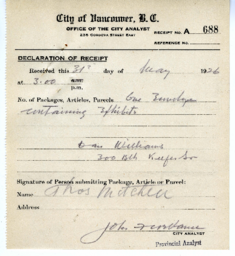 City of Vancouver, B.C.
OFFICE OF THE CITY ANALYST
RECEIPT NO. A 688
REFERENCE NO.
DECLARATION OF RECEIPT
Received this 31st day of May 1926
at 3:00 p.m.
No. of Packages, Articles, Parcels. One Envelope
containing Exhibits
Williams
300 Keefer St
Signature of Person submitting Package, Article or Parcel:
Name Thos Mitchell
Address
CITY ANALYST
Provincial Analyst